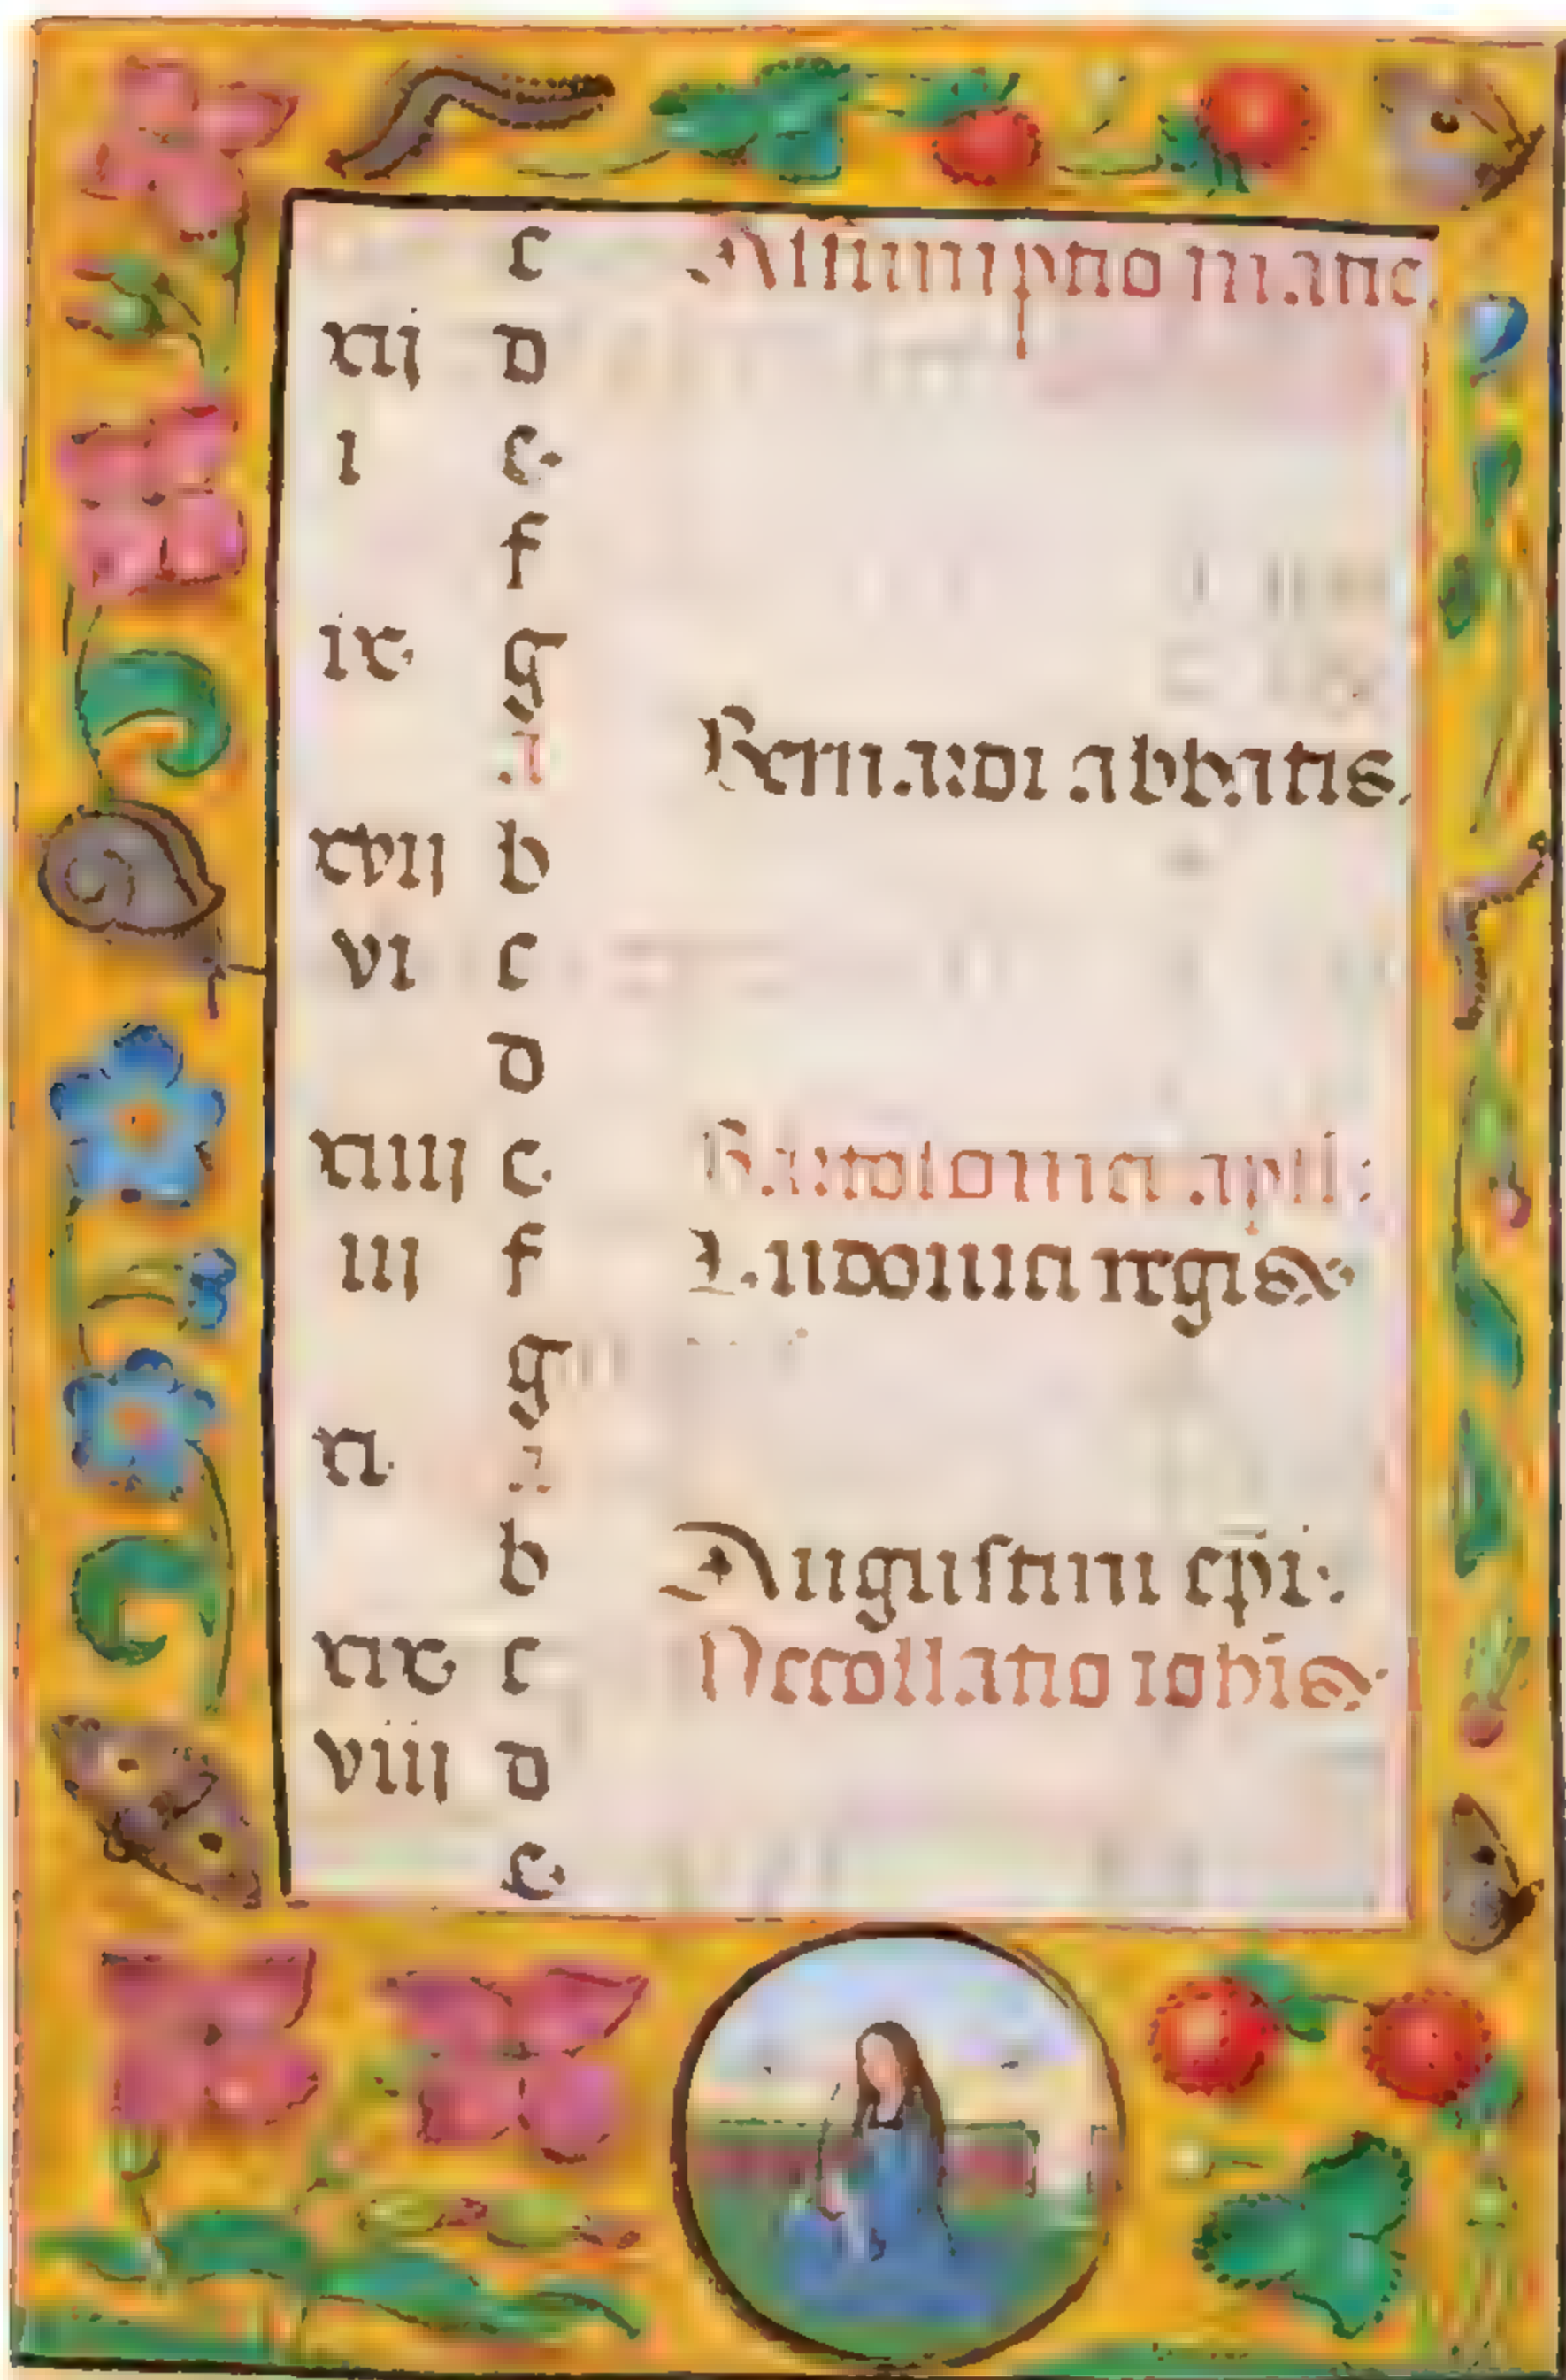 c Assumptio marie.
xij d
i e
f
ix g
a Bernardi abbatis.
xvij b
vi c
d
xiiij e Bartolomei apli:
iij f Ludouici regis
g
xi a
b Augustini epi:
xix c Decollatio iohis
viij d
e